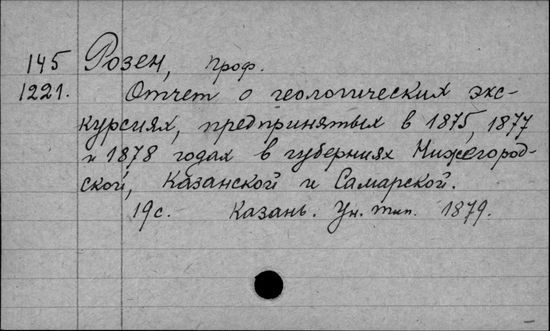 145 Розен, проф.
1221. Отчет о геологических экс-
курсиях, предпринятых в 1875, 1877
и 1878 годах в губерниях Нижегород-
ской, Казанской и Самарской.
19с. Казань. Ун. тип. 1879.